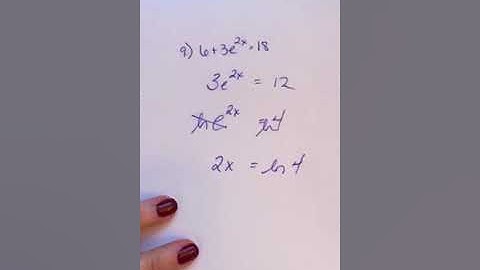 9.) 6+3e^{2x} = 18
3e^{2x} = 12
ln e^{2x} = ln 4
2x = ln 4